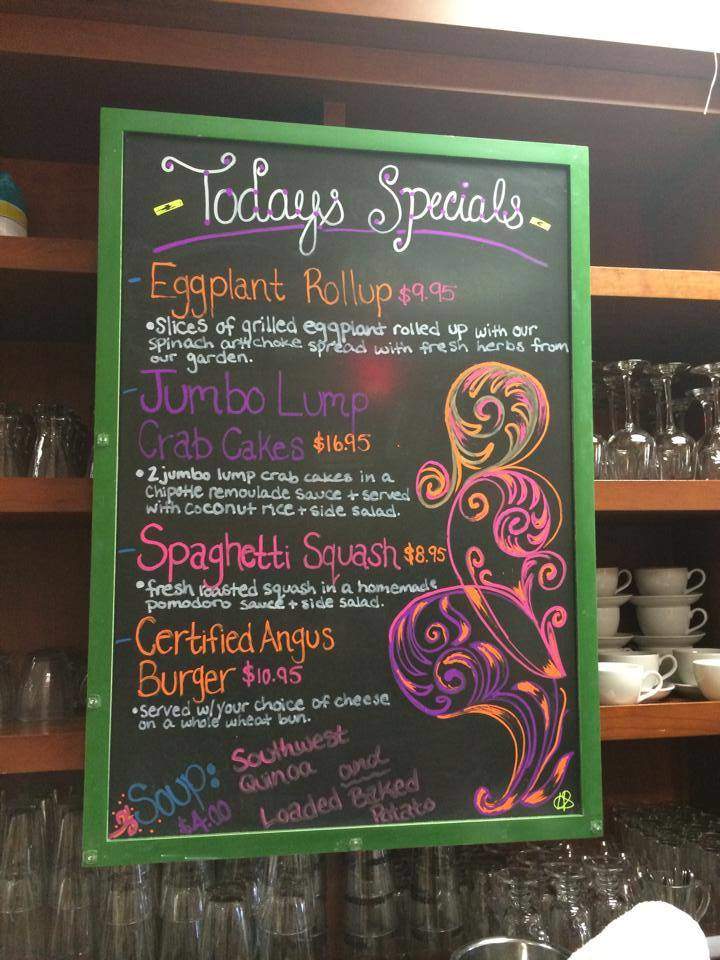 Todays Specials
- Eggplant Rollup $9.95
•Slices of grilled eggplant rolled up with our
spinach artichoke spread with fresh herbs from
our garden.
- Jumbo Lump
Crab Cakes $16.95
•2 jumbo lump crab cakes in a
Chipotle remoulade sauce + served
with coconut rice + side salad.
- Spaghetti Squash $8.95
•fresh roasted squash in a homemade
pomodoro sauce + side salad.
- Certified Angus
Burger $10.95
•served w/your choice of cheese
on a whole wheat bun.
Soup: $4.00
Southwest
Quinoa and
Loaded Baked
Potato